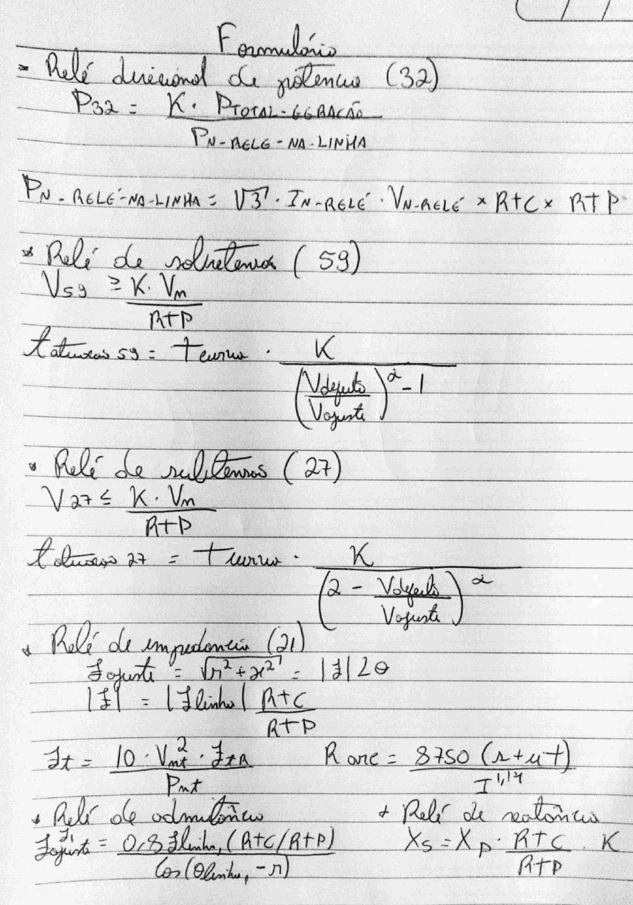 Formulário
* Relé direcional de potencia (32)
P32 = K. PTOTAL-GERAÇÃO / PN-RELE-NA-LINHA
PN-RELÉ-NA-LINHA = √3 . IN-RELÉ . VN-RELÉ × RTC × RTP
* Relé de sobretensão (59)
V59 ≥ K. Vn / RTP
t atuacao 59 = T curva . K / ((Vdefeito / Vajuste)^α - 1)
* Relé de subtensao (27)
V27 ≤ K. Vn / RTP
t atuacao 27 = T curva . K / (2 - Vdefeito / Vajuste)^α
* Relé de impedancia (21)
Zajuste = √r²+x² = |Z|∠θ
|Z| = |Zlinha| RTC / RTP
Zt = 10 . Vnt² . Ztr / Pnt    R arc = 8750 (s+ut) / I^1,4
* Relé de admitância    * Relé de reatância
Zajuste Z1 = 0,8 Zlinha, (RTC/RTP) / cos(θlinha, -r)    Xs = Xp . RTC / RTP . K